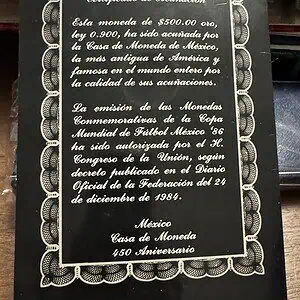 Certificado de Acuñación
Esta moneda de $500.00 oro,
ley 0.900, ha sido acuñada por
la Casa de Moneda de México,
la más antigua de América y
famosa en el mundo entero por
la calidad de sus acuñaciones.
La emisión de las Monedas
Conmemorativas de la Copa
Mundial de Fútbol México '86
ha sido autorizada por el H.
Congreso de la Unión, según
decreto publicado en el Diario
Oficial de la Federación del 24
de diciembre de 1984.
México
Casa de Moneda
450 Aniversario